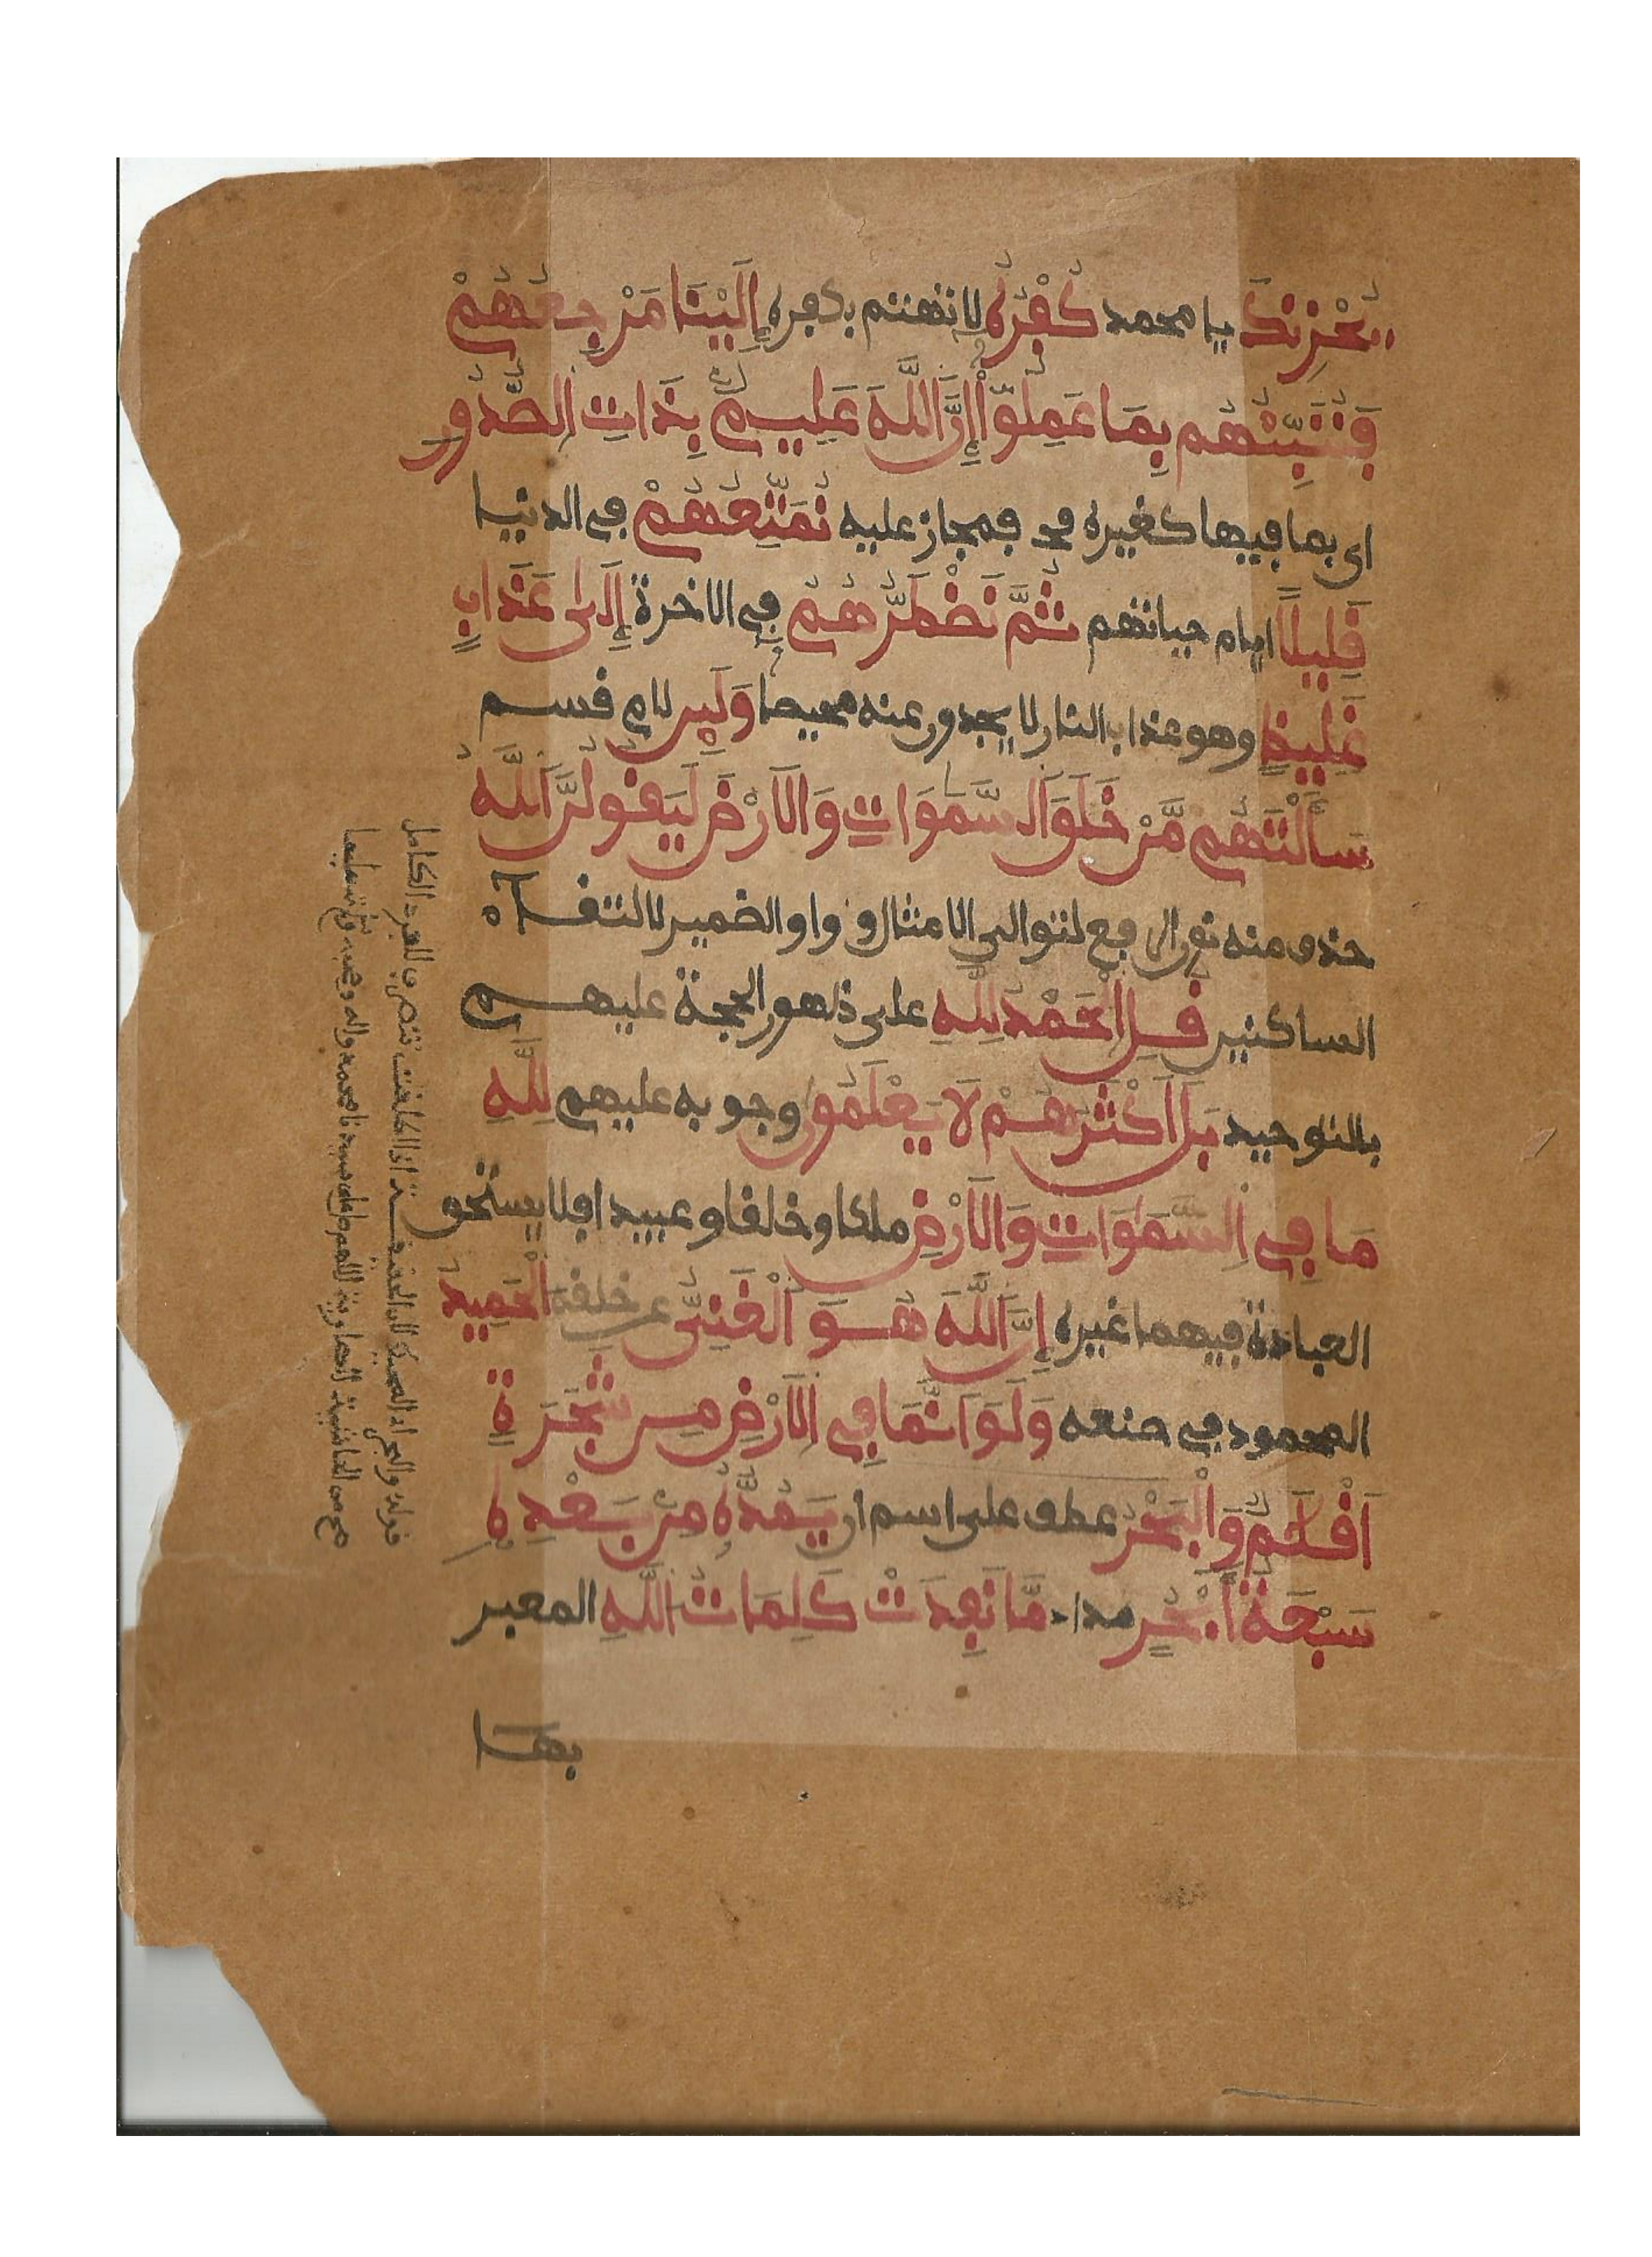 يُحْزِنكَ يا محمد كُفْرُهُ لا تهتم بكفره إِلَيْنَا مَرْجِعُهُمْ
فَنُنَبِّئُهُم بِمَا عَمِلُوٓاْ إِنَّ اَللَّهَ عَلِيمٌ بِذَاتِ اِلصُّدُورِ
اى بما فيها كغيره فمجاز عليه نُمَتِّعُهُمْ في الدنيا
قَلِيلاً ايام حياتهم ثُمَّ نَضْطَرُّهُمُ في الاخرة إِلَىٰ عَذَابٍ
غَلِيظٍ وهو عذاب النار لا يجدون عنه محيصا وَلَئِن لام قسم
سَأَلْتَهُم مَّنْ خَلَقَ اَلسَّمَوَاتِ وَالَارْضَ لَيَقُولُنَّ اَللَّهُ
حذف منه نون الرفع لتوالى الامثال وواو الضمير لالتقاء
الساكنين قُلِ اِلْحَمْدُ لِلَّهِ على ظهور الحجة عليهم
بالتوحيد بَلَ اَكْثَرُهُمْ لَا يَعْلَمُونَ وجوبه عليهم لِلَّهِ
مَا فِي اِلسَّمَوَاتِ وَالَارْضِ ملكا وخلقا وعبيدا فلا يستحق
العبادة فيهما غيره إِنَّ اَللَّهَ هُوَ اَلْغَنِيُّ عن خلقه اَلْحَمِيدُ
المحمود في صنعه وَلَوَ اَنَّمَا فِي اِلَارْضِ مِن شَجَرَةٍ
اَقْلَمٌ وَالْبَحْرُ عطف على اسم ان يَمُدُّهُ مِنۢ بَعْدِهِ
سَبْعَةُ أَبْحُرٍ مداد مَّا نَفِدَتْ كَلِمَاتُ اُللَّهِ المعبر
بها